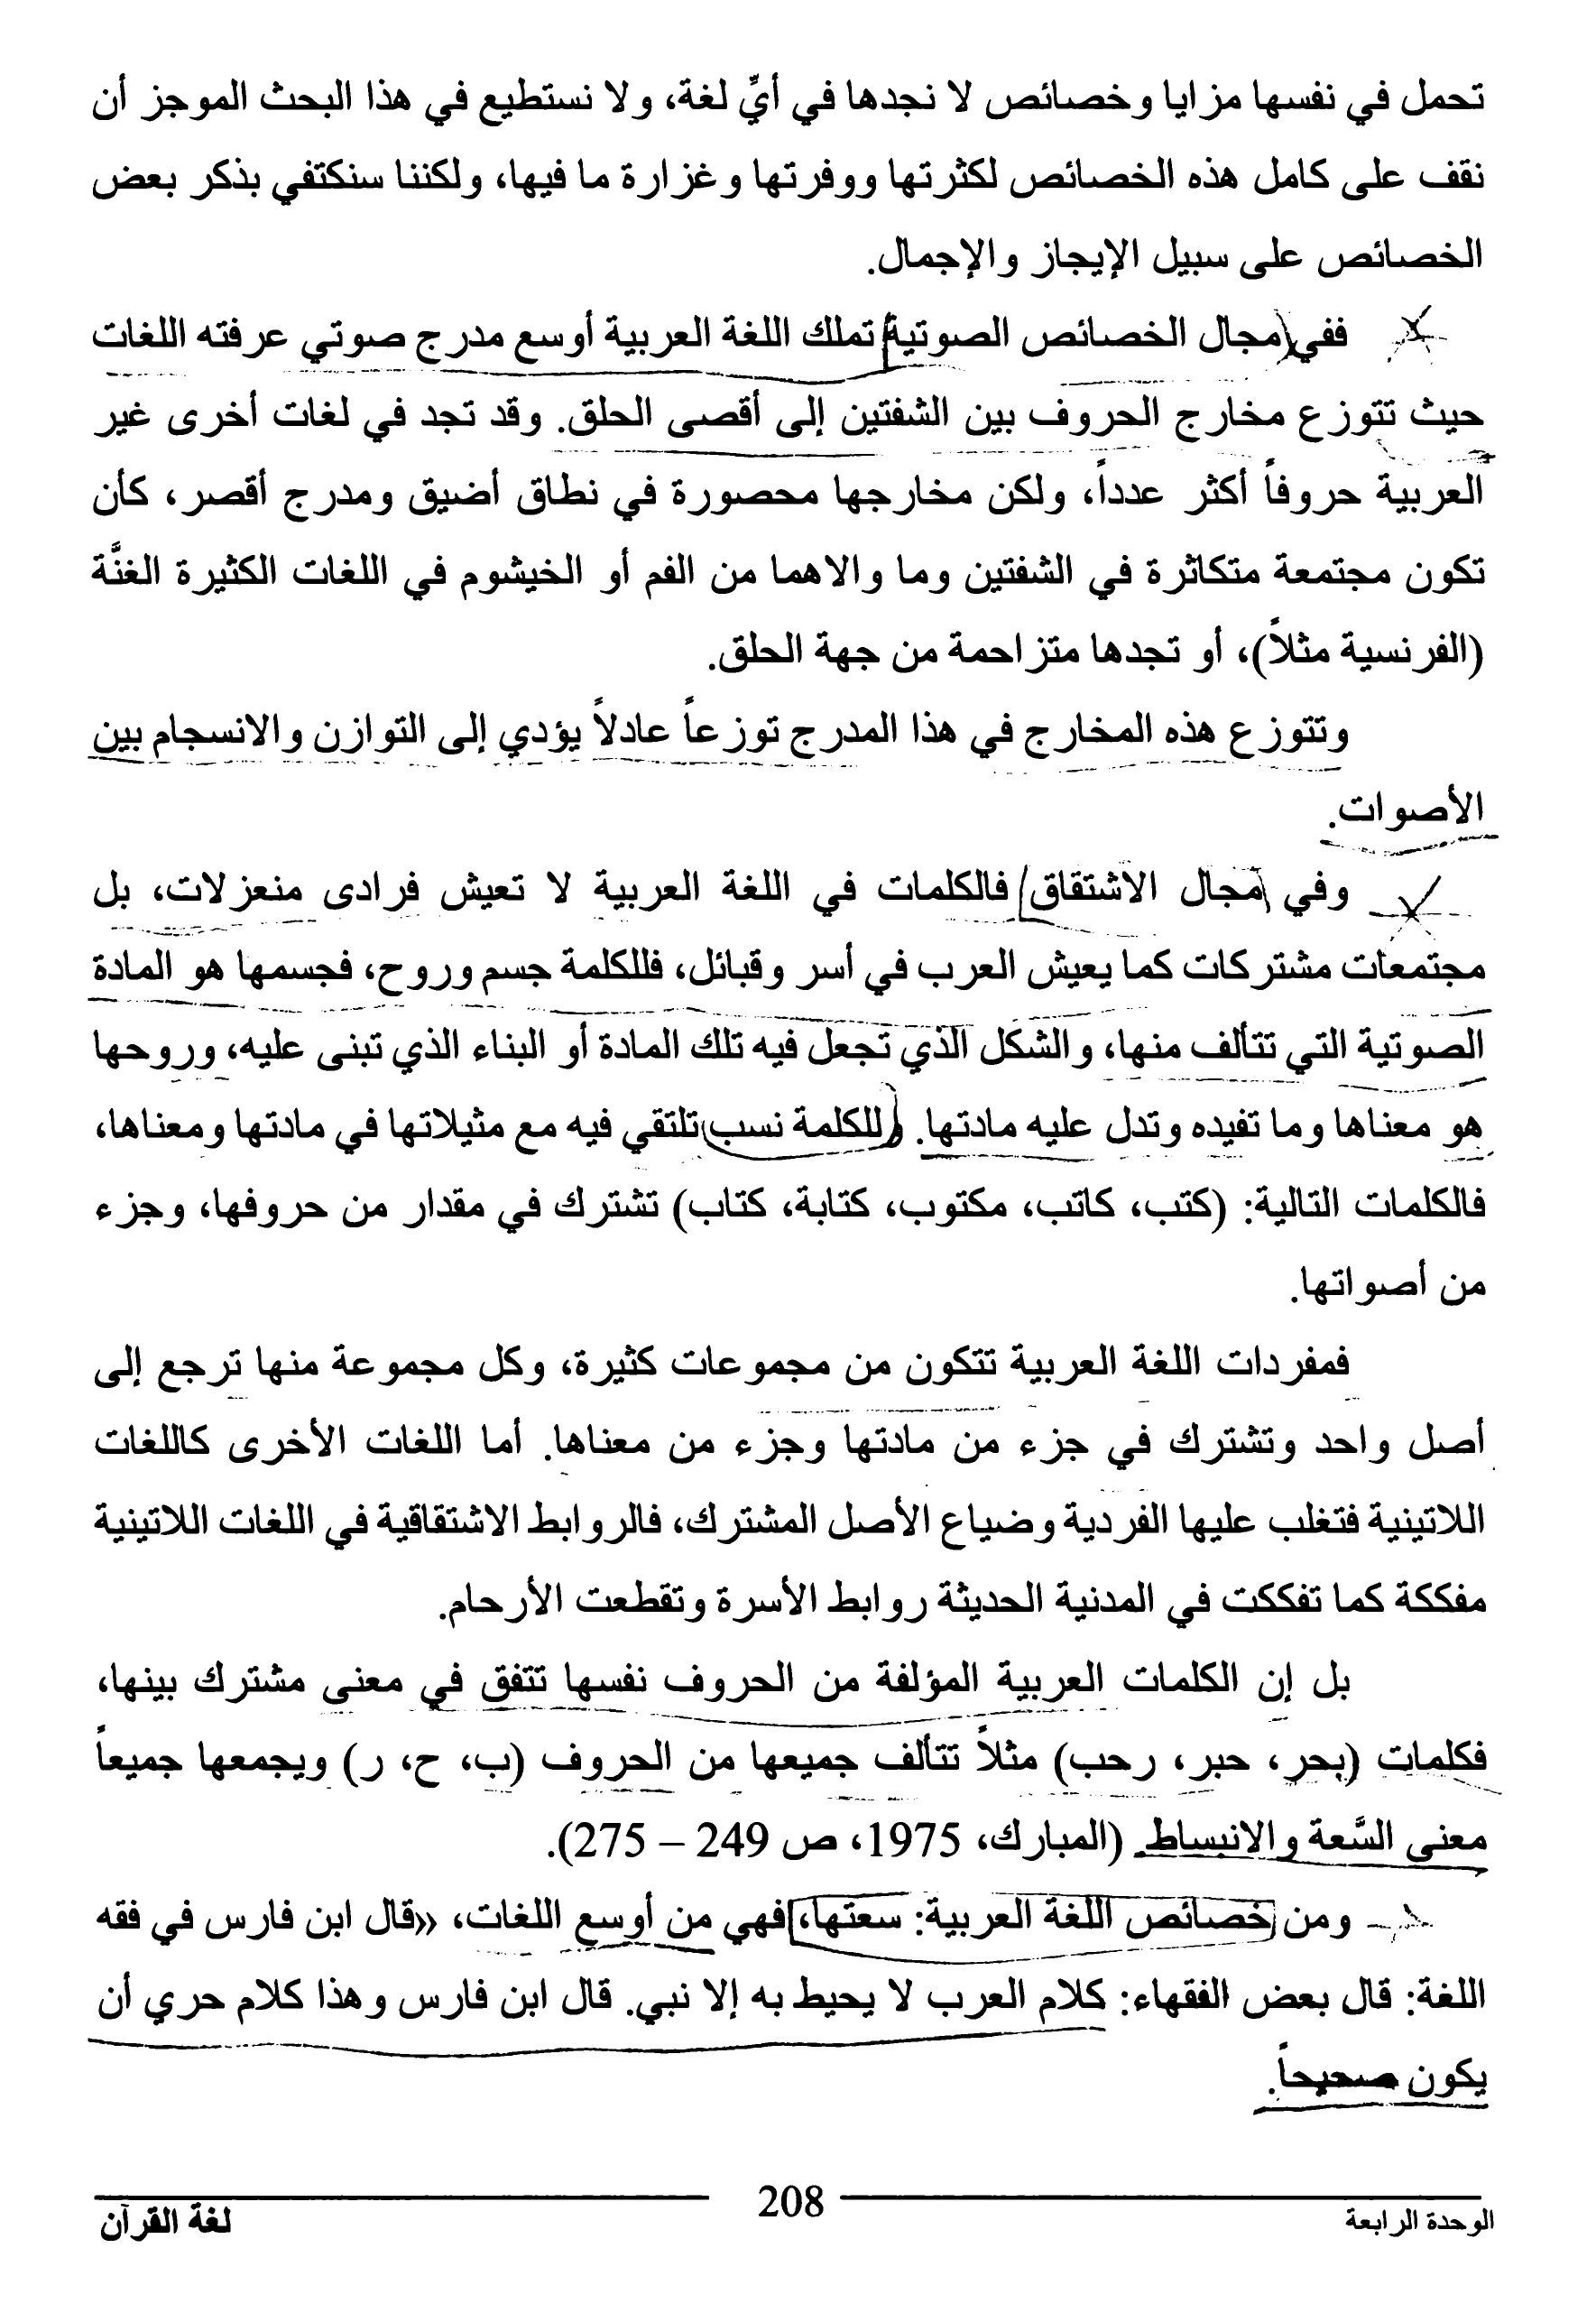 تحمل في نفسها مزايا وخصائص لا نجدها في أيِّ لغة، ولا نستطيع في هذا البحث الموجز أن
نقف على كامل هذه الخصائص لكثرتها ووفرتها وغزارة ما فيها، ولكننا سنكتفي بذكر بعض
الخصائص على سبيل الإيجاز والإجمال.
ففي مجال الخصائص الصوتية تملك اللغة العربية أوسع مدرج صوتي عرفته اللغات
حيث تتوزع مخارج الحروف بين الشفتين إلى أقصى الحلق. وقد تجد في لغات أخرى غير
العربية حروفاً أكثر عدداً، ولكن مخارجها محصورة في نطاق أضيق ومدرج أقصر، كأن
تكون مجتمعة متكاثرة في الشفتين وما والاهما من الفم أو الخيشوم في اللغات الكثيرة الغنَّة
(الفرنسية مثلاً)، أو تجدها متزاحمة من جهة الحلق.
وتتوزع هذه المخارج في هذا المدرج توزعاً عادلاً يؤدي إلى التوازن والانسجام بين
الأصوات.
وفي مجال الاشتقاق فالكلمات في اللغة العربية لا تعيش فرادى منعزلات، بل
مجتمعات مشتركات كما يعيش العرب في أسر وقبائل، فللكلمة جسم وروح، فجسمها هو المادة
الصوتية التي تتألف منها، والشكل الذي تجعل فيه تلك المادة أو البناء الذي تبنى عليه، وروحها
هو معناها وما تفيده وتدل عليه مادتها. وللكلمة نسب تلتقي فيه مع مثيلاتها في مادتها ومعناها،
فالكلمات التالية: (كتب، كاتب، مكتوب، كتابة، كتاب) تشترك في مقدار من حروفها، وجزء
من أصواتها.
فمفردات اللغة العربية تتكون من مجموعات كثيرة، وكل مجموعة منها ترجع إلى
أصل واحد وتشترك في جزء من مادتها وجزء من معناها. أما اللغات الأخرى كاللغات
اللاتينية فتغلب عليها الفردية وضياع الأصل المشترك، فالروابط الاشتقاقية في اللغات اللاتينية
مفككة كما تفككت في المدنية الحديثة روابط الأسرة وتقطعت الأرحام.
بل إن الكلمات العربية المؤلفة من الحروف نفسها تتفق في معنى مشترك بينها،
فكلمات (بحر، حبر، رحب) مثلاً تتألف جميعها من الحروف (ب، ح، ر) ويجمعها جميعاً
معنى السَّعة والانبساط. (المبارك، 1975، ص 249 – 275).
ومن خصائص اللغة العربية: سعتها، فهي من أوسع اللغات، «قال ابن فارس في فقه
اللغة: قال بعض الفقهاء: كلام العرب لا يحيط به إلا نبي. قال ابن فارس وهذا كلام حري أن
يكون صحيحاً.
الوحدة الرابعة 208 لغة القرآن